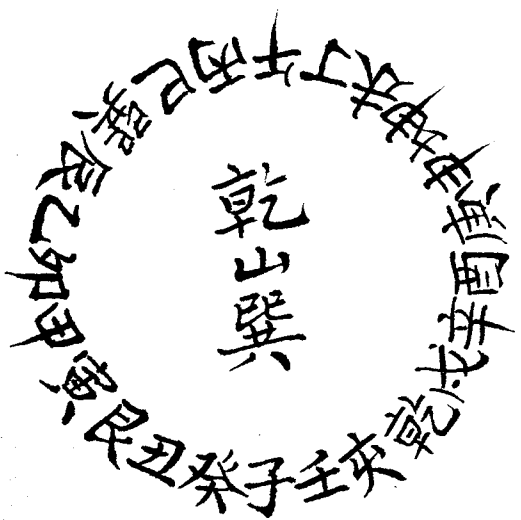 乾山巽
子癸丑艮寅甲卯乙辰巽巳丙午丁未坤申庚酉辛戌乾亥壬